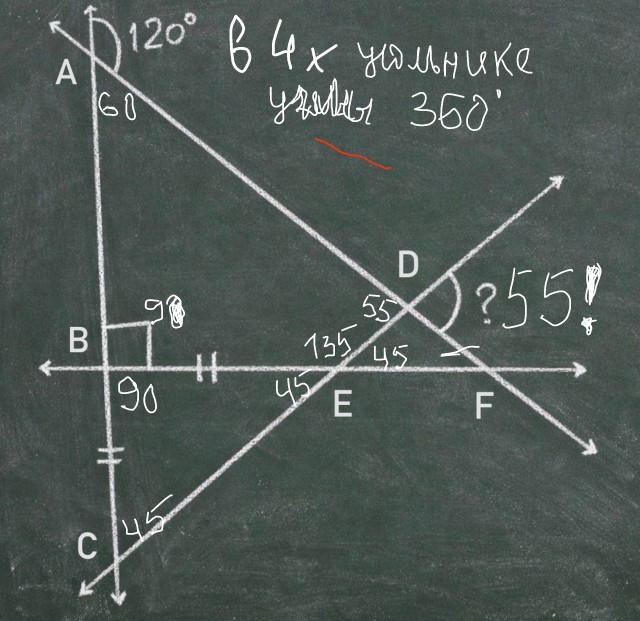 120°
в 4х угольнике
A
углы 360°
60
D
55
? 55!
B
90
135
45
45
90
E
F
45
C